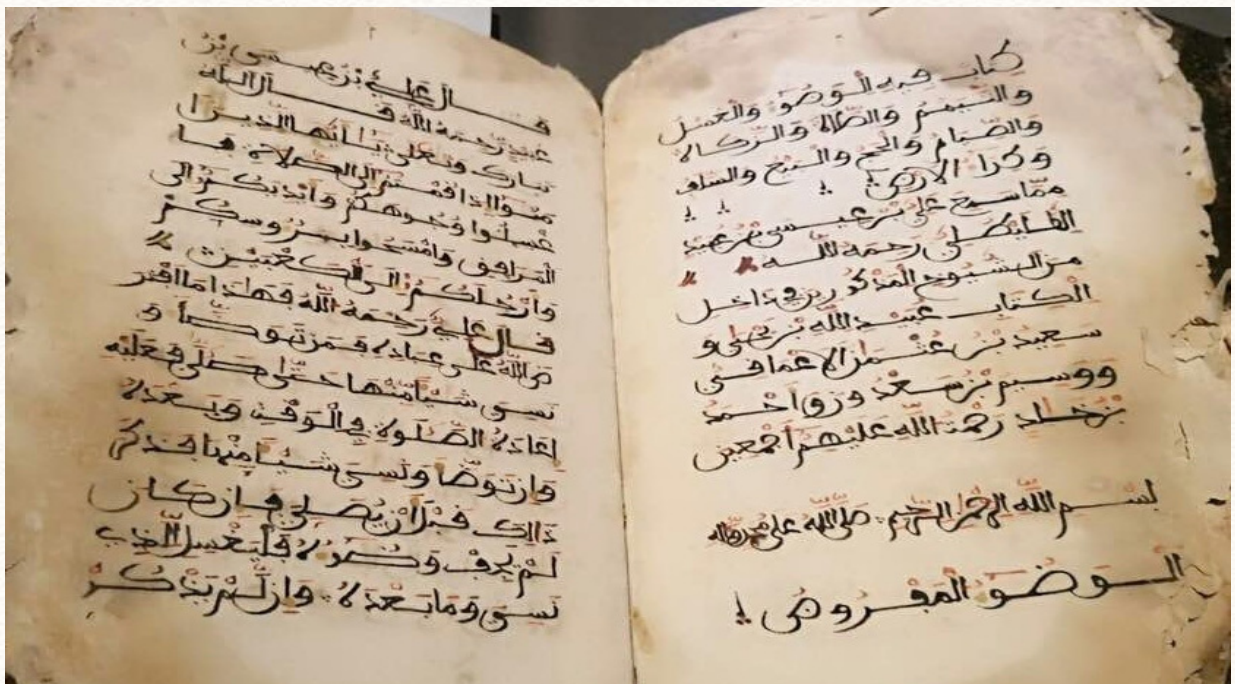 كتاب فيه الوضوء والغسل
والتيمم والصلاة والزكاة
والصيام والحج والبيع والسلف
وكراء الارض
مما سمع علي بن عيسى بن عبيد
الطليطلي رحمه الله
من الشيوخ المذكورين في داخل
الكتاب عبيد الله بن يحيى و
سعيد بن عثمان الاعناقي
ووسيم بن سعدون واحمد
بن خالد رحمت الله عليهم اجمعين
بسم الله الرحمن الرحيم صلى الله على محمد واله
الوضوء المفروض
قال علي بن عيسى بن
عبيد رحمه الله قال الله
تبارك وتعلى يا أيها الذين ا
منوا اذا قمتم الى الصلاة فا
غسلوا وجوهكم وايديكم الى
المرافق وامسحوا برءوسكم
وأرجلكم إلى الكعبين
قال علي رحمه الله فهذا ما افتر
ض الله على عباده فمن توضأ و
نسي شيئا منها حتى صلى فعليه
اعادة الصلوة في الوقت وبعده
وان توضا ونسي شيئا منها فذكر
ذالك قبل أن يصلي فان كان
لم يجف وضوءه فليغسل الذي
نسي وما بعده وان لم يذكر